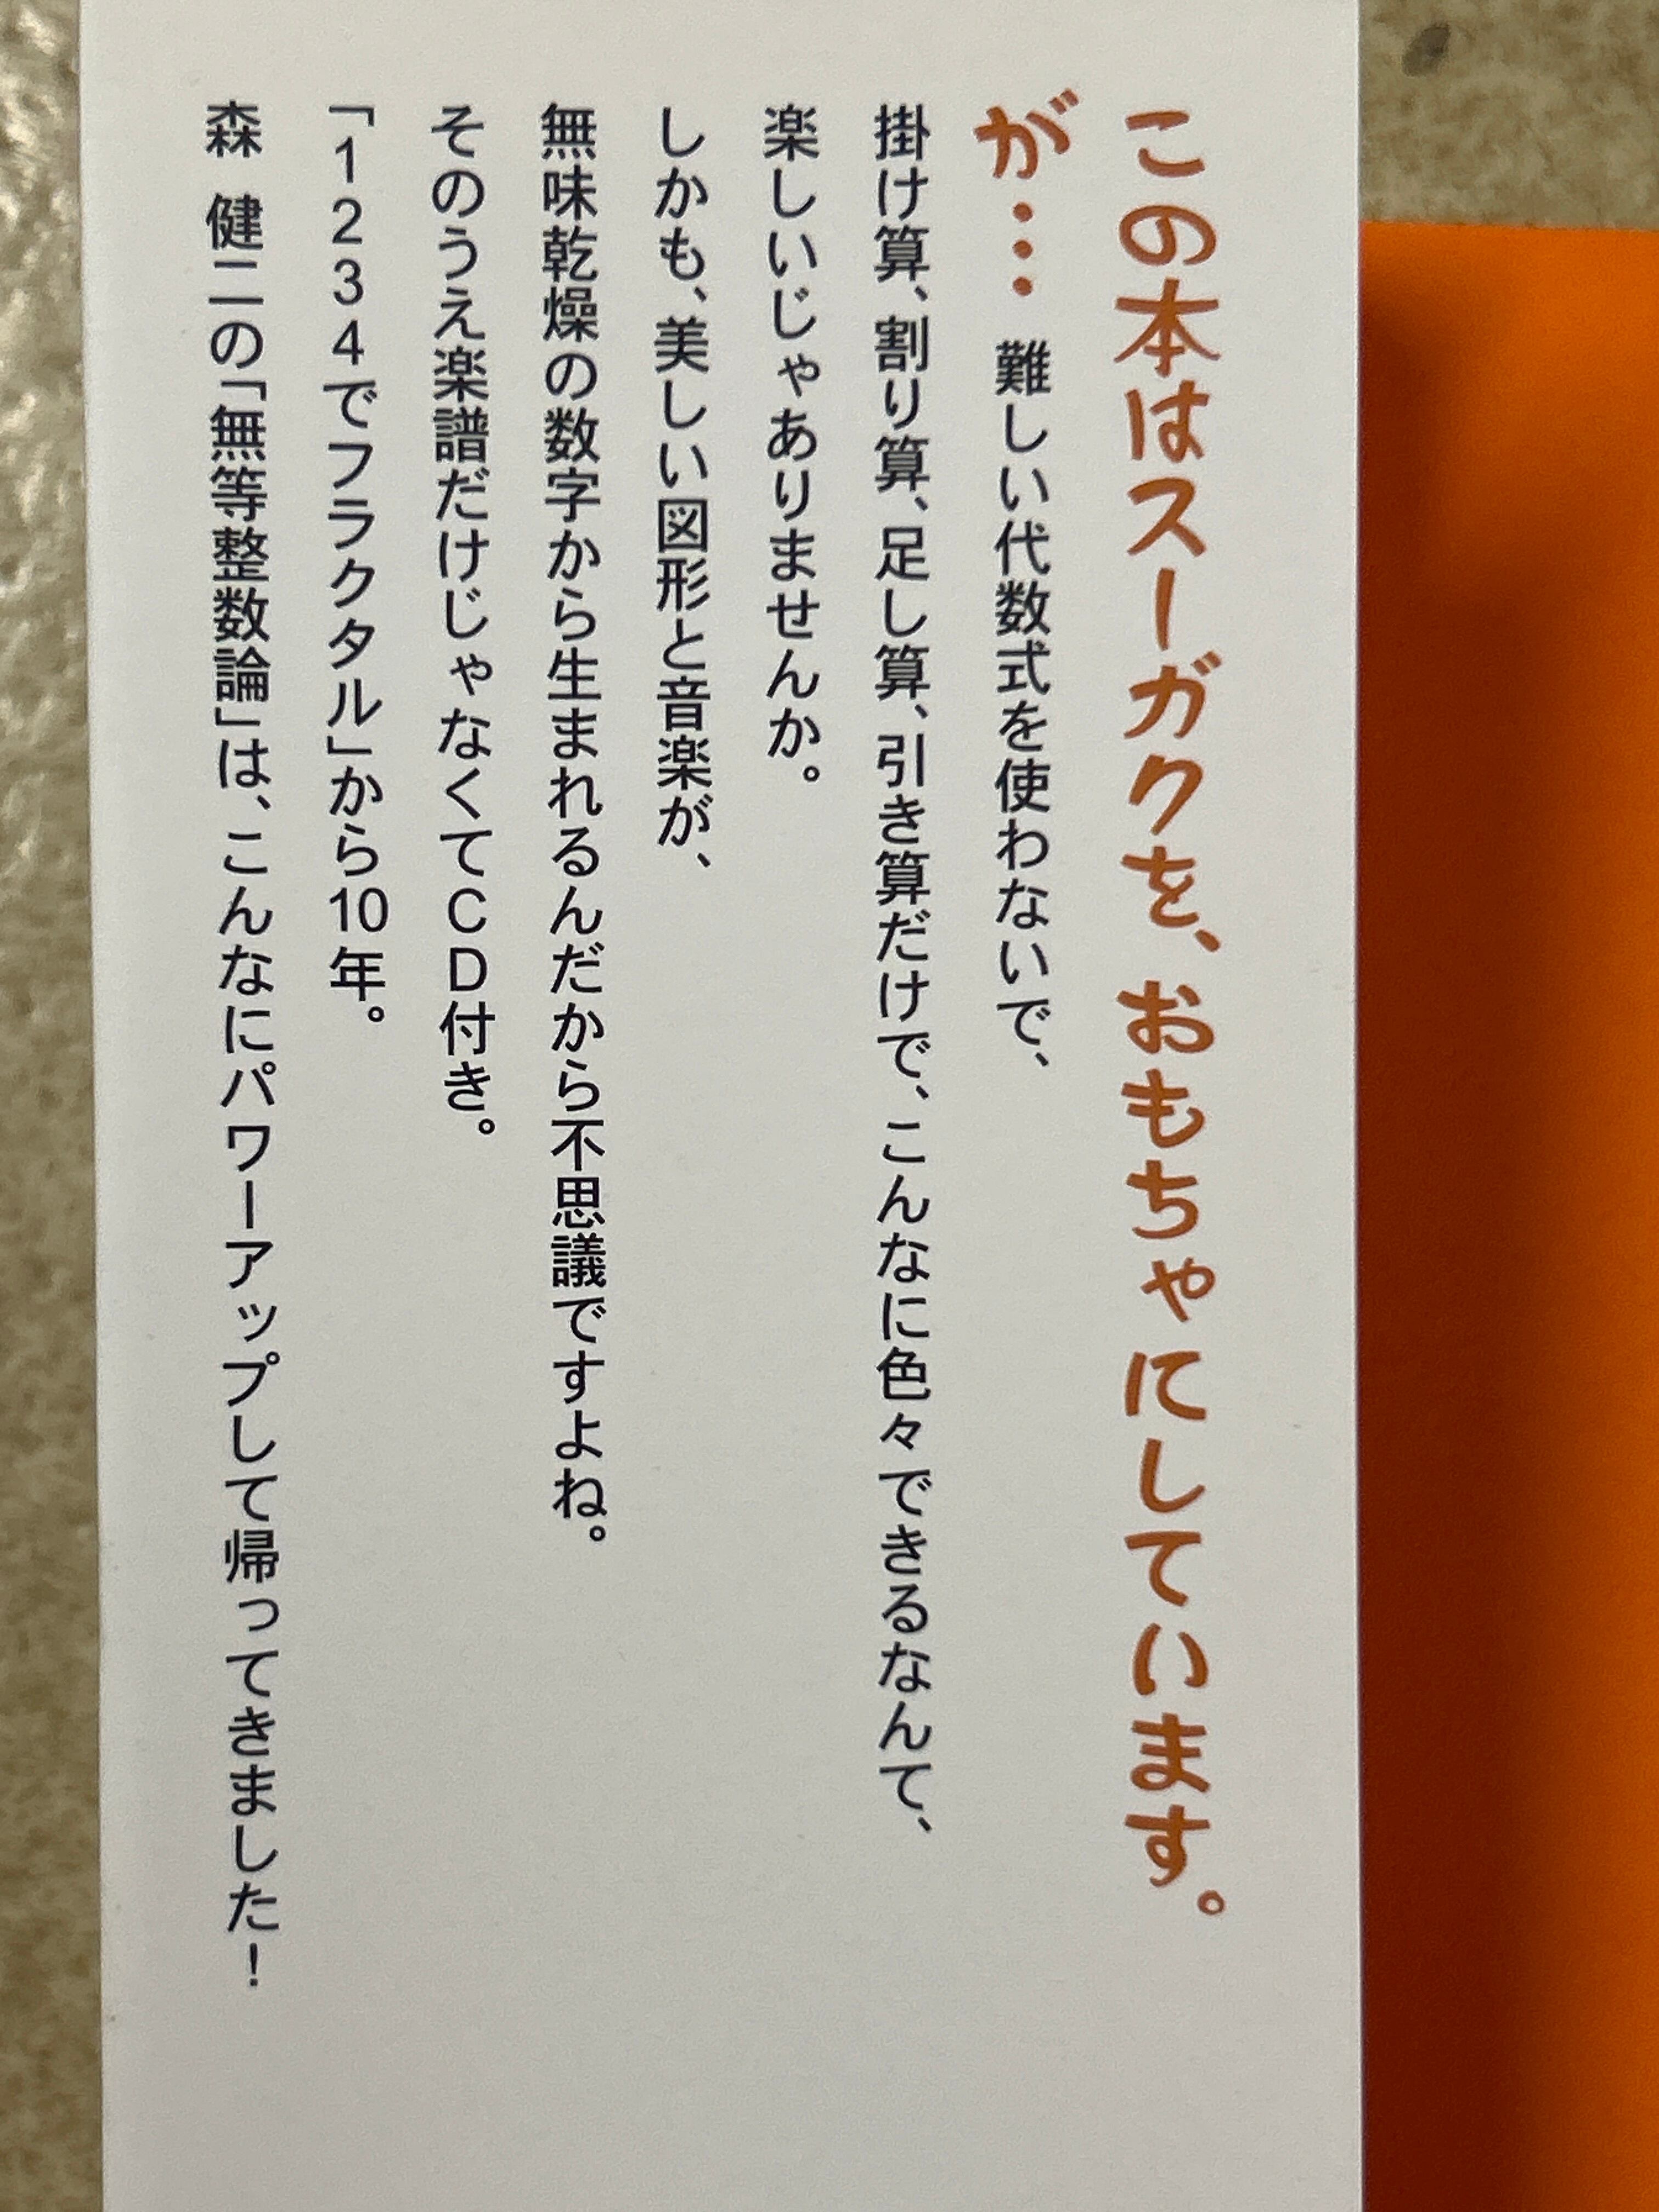 この本はスーガクを、おもちゃにしています。
が… 難しい代数式を使わないで、
掛け算、割り算、足し算、引き算だけで、こんなに色々できるなんて、
楽しいじゃありませんか。
しかも、美しい図形と音楽が、
無味乾燥の数字から生まれるんだから不思議ですよね。
そのうえ楽譜だけじゃなくてCD付き。
「1234でフラクタル」から10年。
森 健二の「無等整数論」は、こんなにパワーアップして帰ってきました！